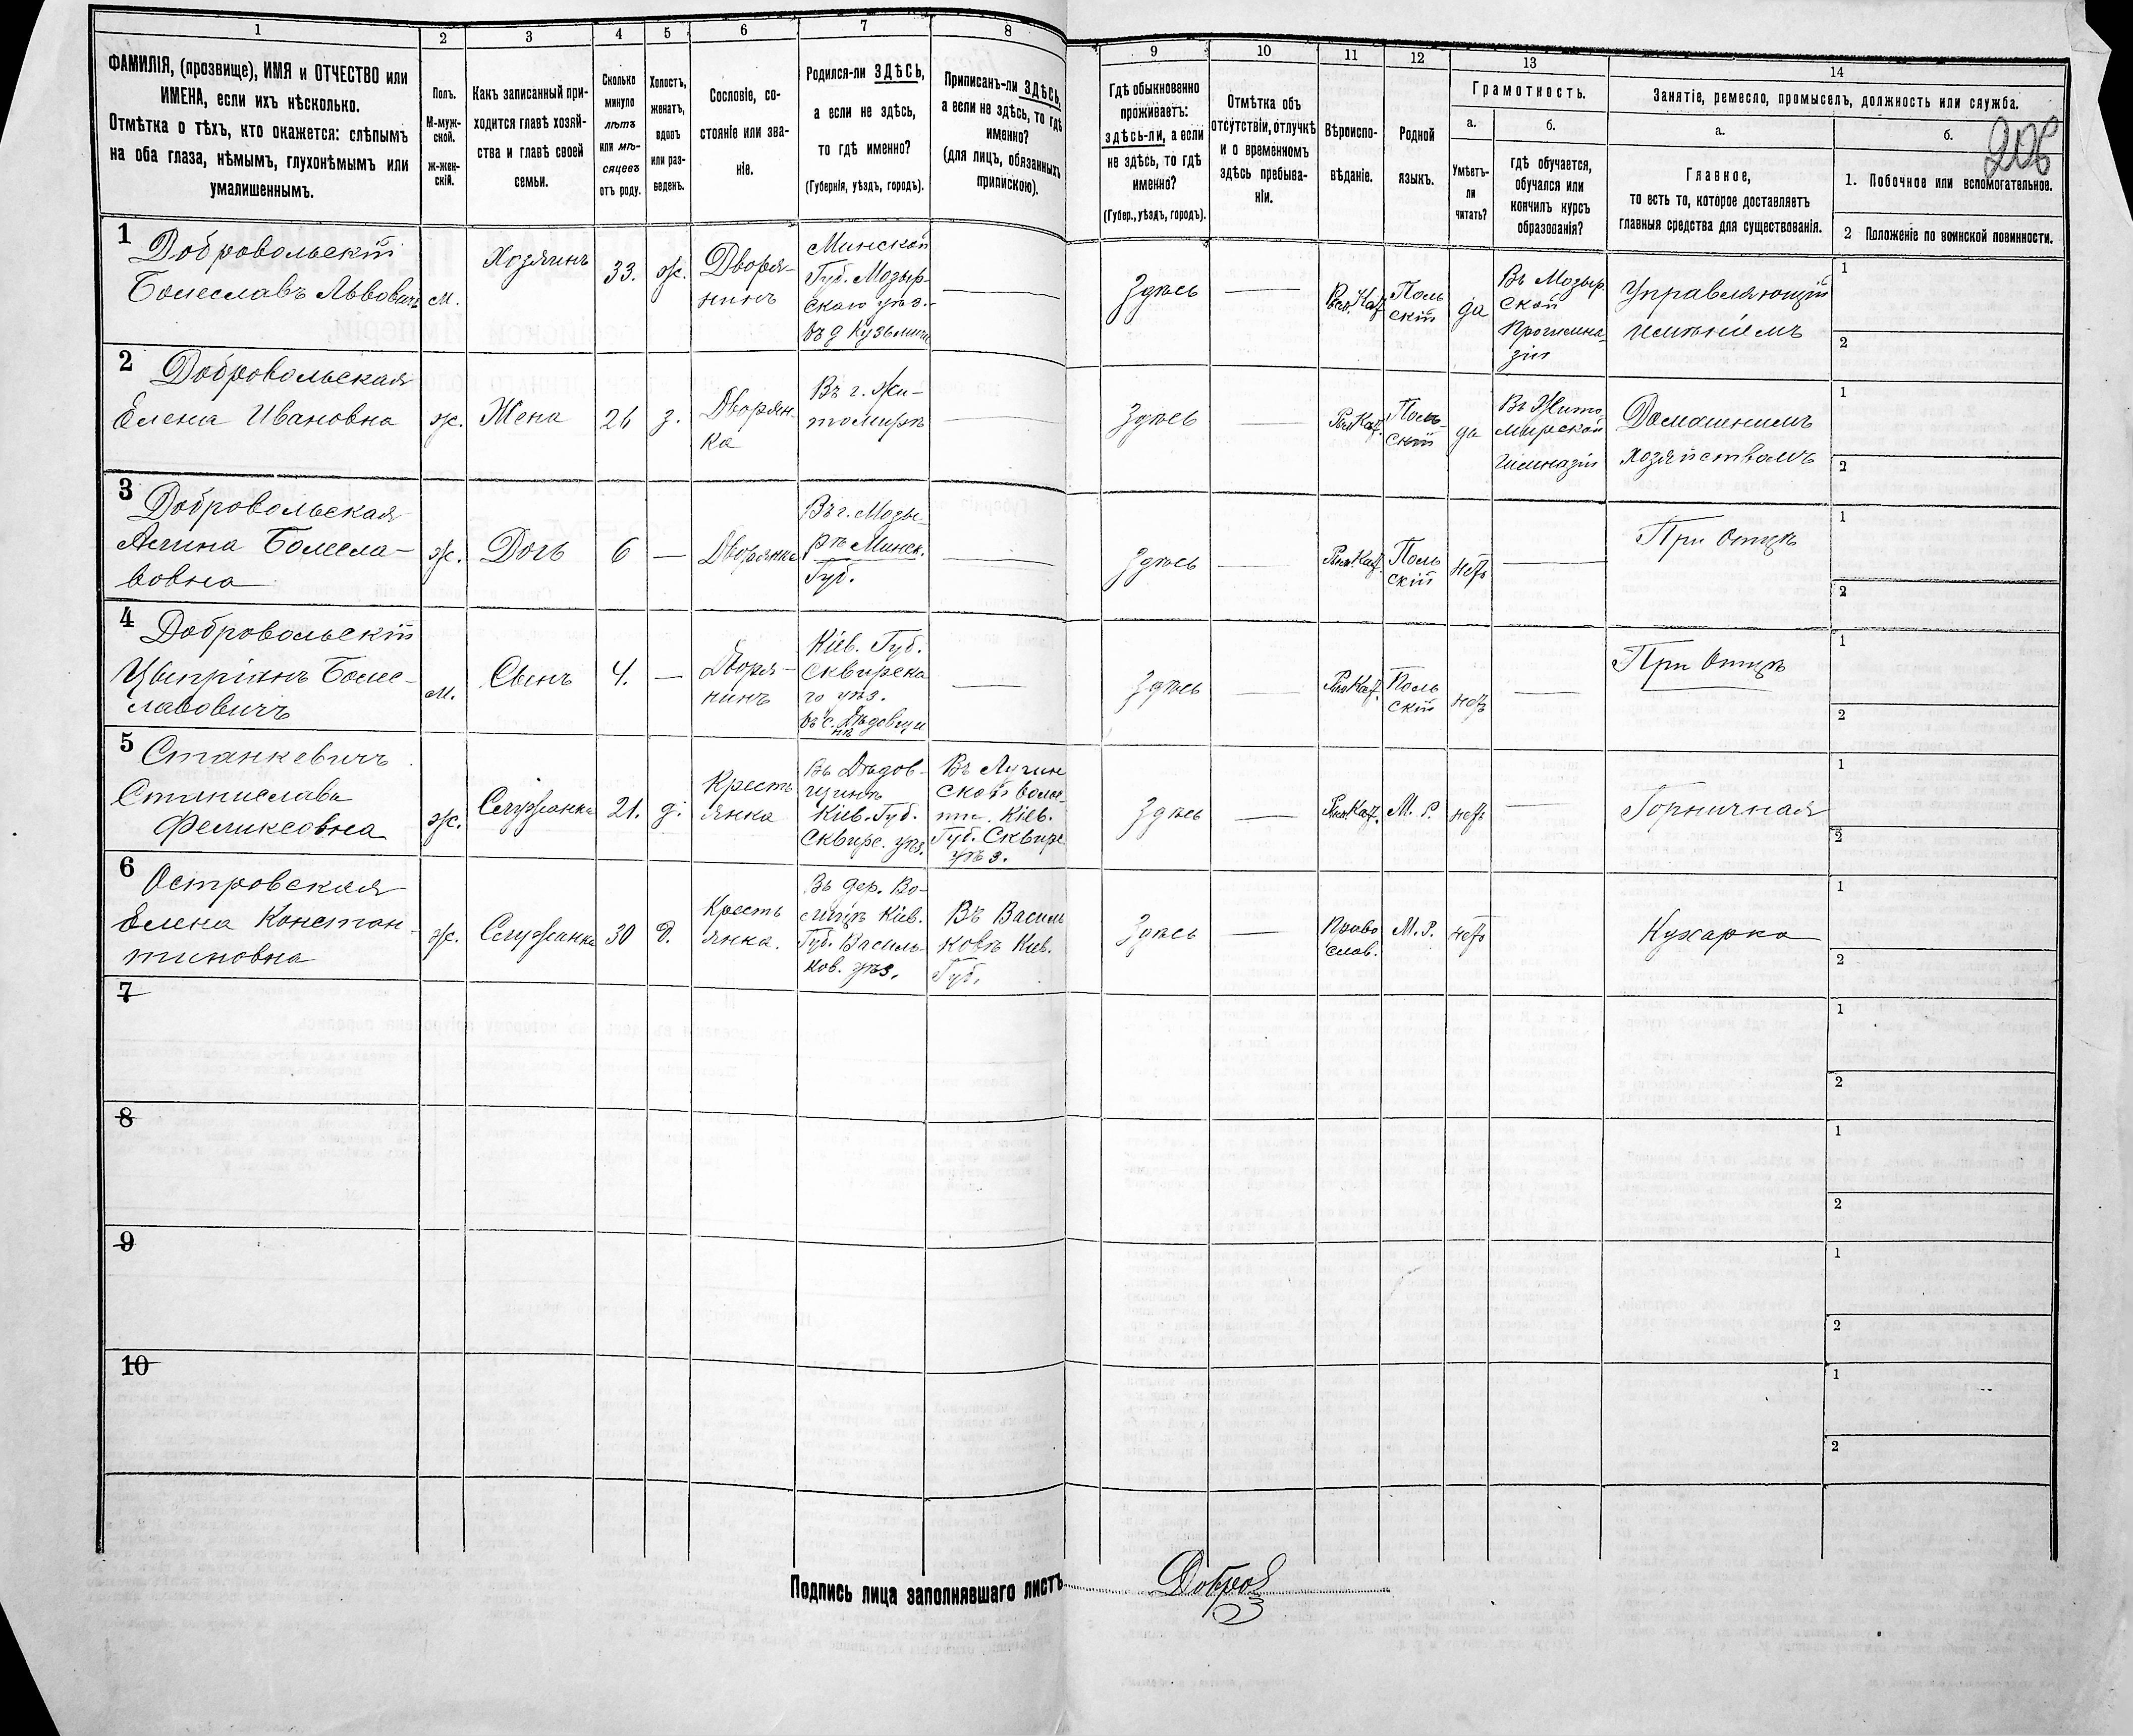 1
2
3
4
5
6
7
8
9
10
11
12
13
14
ФАМИЛІЯ, (прозвище), ИМЯ и ОТЧЕСТВО или
ИМЕНА, если ихъ нѣсколько.
Отмѣтка о тѣхъ, кто окажется: слѣпымъ
на оба глаза, нѣмымъ, глухонѣмымъ или
умалишеннымъ.
Полъ.
М-муж-
ской.
ж-жен-
скій.
Какъ записанный при-
ходится главѣ хозяй-
ства и главѣ своей
семьи.
Сколько
минуло
лѣтъ
или мѣ-
сяцевъ
отъ роду.
Холостъ,
женатъ,
вдовъ
или раз-
веденъ.
Сословіе, со-
стояніе или зва-
ніе.
Родился-ли ЗДѢСЬ,
а если не здѣсь,
то гдѣ именно?
(Губернія, уѣздъ, городъ).
Приписанъ-ли ЗДѢСЬ,
а если не здѣсь, то гдѣ
именно?
(для лицъ, обязанныхъ
припискою).
Гдѣ обыкновенно
проживаетъ:
здѣсь-ли, а если
не здѣсь, то гдѣ
именно?
(Губер., уѣздъ, городъ).
Отмѣтка объ
отсутствіи, отлучкѣ
и о временномъ
здѣсь пребыва-
ніи.
Вѣроиспо-
вѣданіе.
Родной
языкъ.
Грамотность.
а.
Умѣетъ-
ли
читать?
б.
гдѣ обучается,
обучался или
кончилъ курсъ
образованія?
Занятіе, ремесло, промыселъ, должность или служба.
а.
Главное,
то есть то, которое доставляетъ
главныя средства для существованія.
б.
206
1. Побочное или вспомогательное.
2 Положеніе по воинской повинности.
1
Добровольскій
Болеславъ Львовичъ
м.
Хозяинъ
33.
ж.
Дворя-
нинъ
Минской
Губ. Мозыр-
скаго уѣз.
въ д Кузьмичи
Здѣсь
Рим. Каѳ
Поль
скій
да
Въ Мозыр
ской
Прогимна-
зіи
Управляющій
имѣніемъ
1
2
2
Добровольская
Елена Ивановна
ж.
Жена
26
з.
Дворян-
ка
Въ г. Жи-
томирѣ
Здѣсь
Рим Каѳ.
Поль-
скій
да
Въ Жито-
мирской
Гимназіи
Домашнимъ
хозяйствомъ
1
2
3
Добровольская
Янина Болесла-
вовна
ж.
Дочь
6
Дворянка
Въ г. Мозы-
рѣ Минск.
Губ.
Здѣсь
Рим. Каѳ.
Поль
скій
нетъ
При Отцѣ
1
2
4
Добровольскій
Цыпріянъ Боле-
славовичъ
м.
Сынъ
4.
Дворя-
нинъ
Кіев. Губ.
Сквирска
го уѣз.
въ с. Дѣдовщи
нѣ
Здѣсь
Рим Каѳ.
Поль
скій
нетъ
При Отцѣ
1
2
5
Станкевичъ
Станислава
Феликсовна
ж.
Служанка
21.
д.
Кресть
янка
Въ Дѣдов-
щинѣ
Кіев. Губ.
Сквирс. уѣз.
Въ Лучин
ской волос-
ти. Кіев.
Губ. Сквирс.
уѣз.
Здѣсь
Рим. Каѳ.
М. Р.
нетъ
Горничная
1
2
6
Островская
Елена Констан-
тиновна
ж.
Служанка
30
д.
Кресть
янка.
Въ дер. Во-
лицѣ Кіев.
Губ. Василь
ков. уѣз.
Въ Василь
ковѣ Кіев.
Губ.
Здѣсь
Право
слав.
М. Р.
нетъ
Кухарка
1
2
7
1
2
8
1
2
9
1
2
10
1
2
Подпись лица заполнявшаго листъ